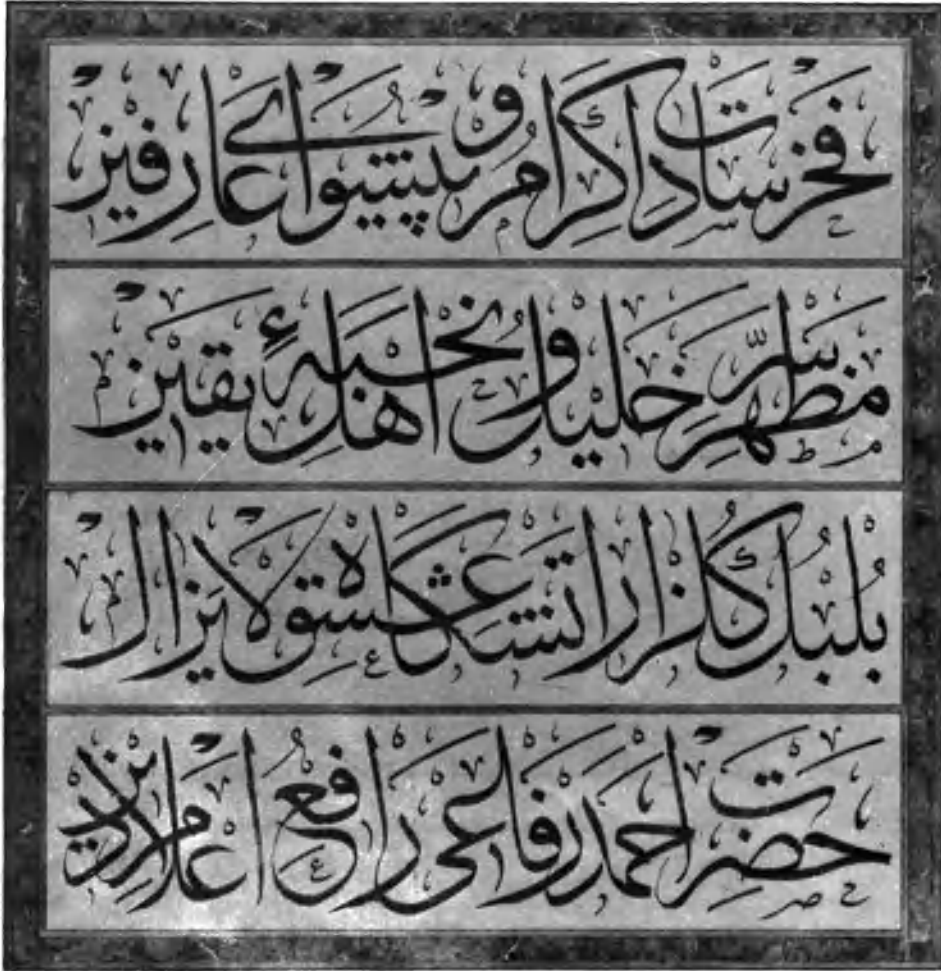 فخر سادات كرام و پیشوای عارفین
مظهر سر خلیل و نخبهٔ اهل یقین
بلبل گلزار آتشگاه عشق لا یزال
حضرت احمد رفاعی رافع اعلام دین